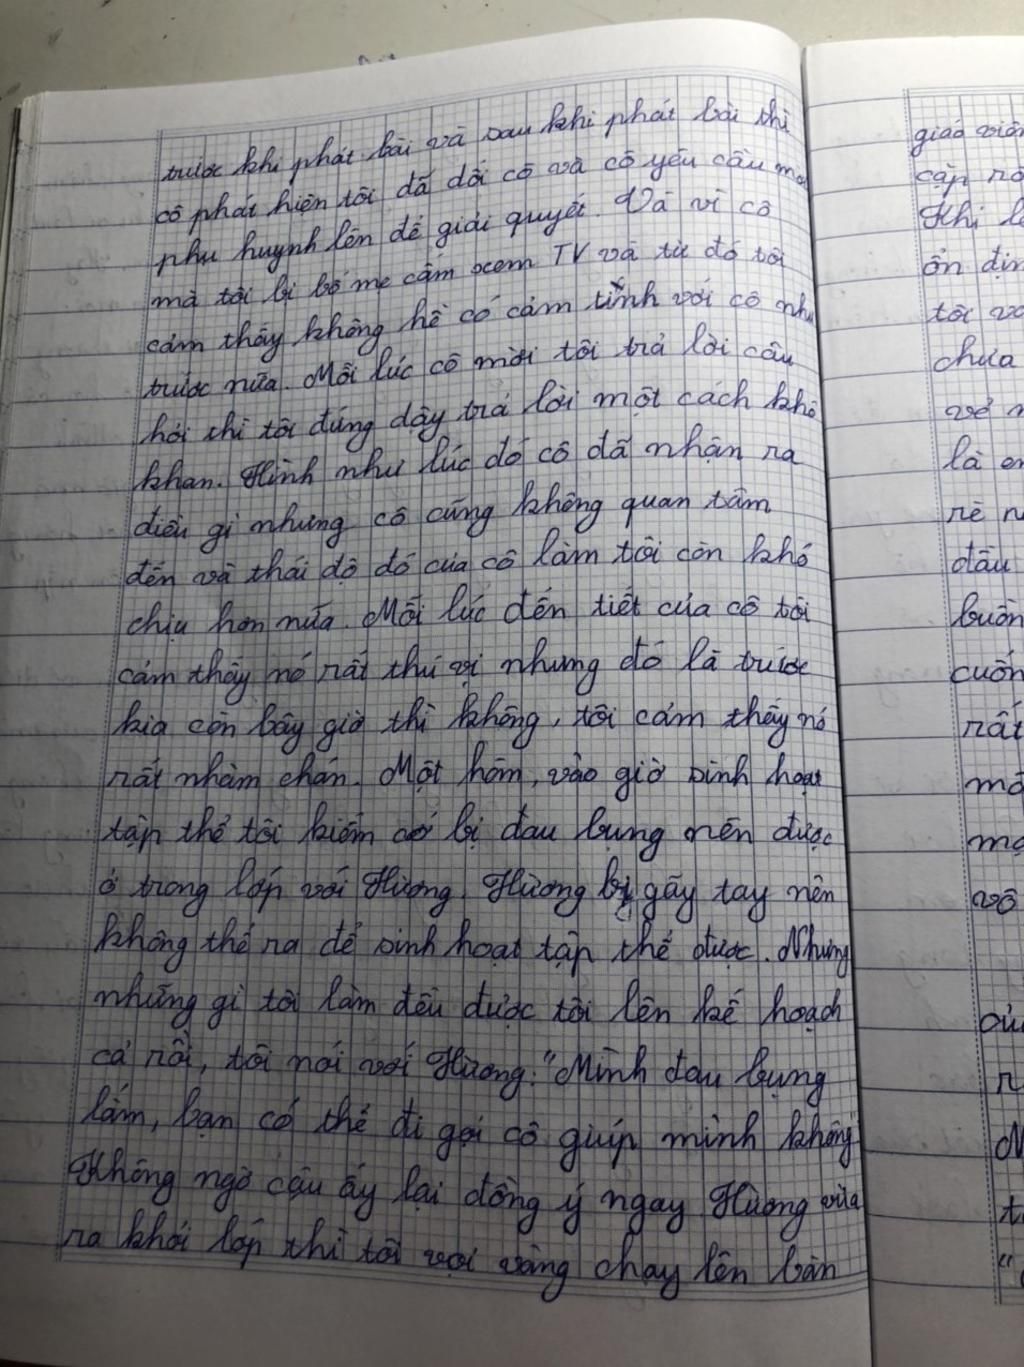 trước khi phát bài và sau khi phát bài thì
cô phát hiện tôi đã dối cô và cô yêu cầu mời
phụ huynh lên để giải quyết. Và vì cô
mà tôi bị bố mẹ cấm xem TV và từ đó tôi
cảm thấy không hề có cảm tình với cô như
trước nữa. Mỗi lúc cô mời tôi trả lời câu
hỏi thì tôi đứng dậy trả lời một cách khô
khan. Hình như lúc đó cô đã nhận ra
điều gì nhưng cô cũng không quan tâm
đến và thái độ đó của cô làm tôi còn khó
chịu hơn nữa. Mỗi lúc đến tiết của cô tôi
cảm thấy nó rất thú vị nhưng đó là trước
kia còn bây giờ thì không, tôi cảm thấy nó
rất nhàm chán. Một hôm, vào giờ sinh hoạt
tập thể tôi kiếm cớ bị đau bụng nên được
ở trong lớp với Hường. Hường bị gãy tay nên
không thể ra để sinh hoạt tập thể được. Nhưng
những gì tôi làm đều được tôi lên kế hoạch
cả rồi, tôi nói với Hường: "Mình đau bụng
lắm, bạn có thể đi gọi cô giúp mình không"
Không ngờ cậu ấy lại đồng ý ngay Hường vừa
ra khỏi lớp thì tôi vội vàng chạy lên bàn
giáo viên
cặp
Khi
ổn địn
tôi
chưa
là
đầu
buồn
cuốn
rất